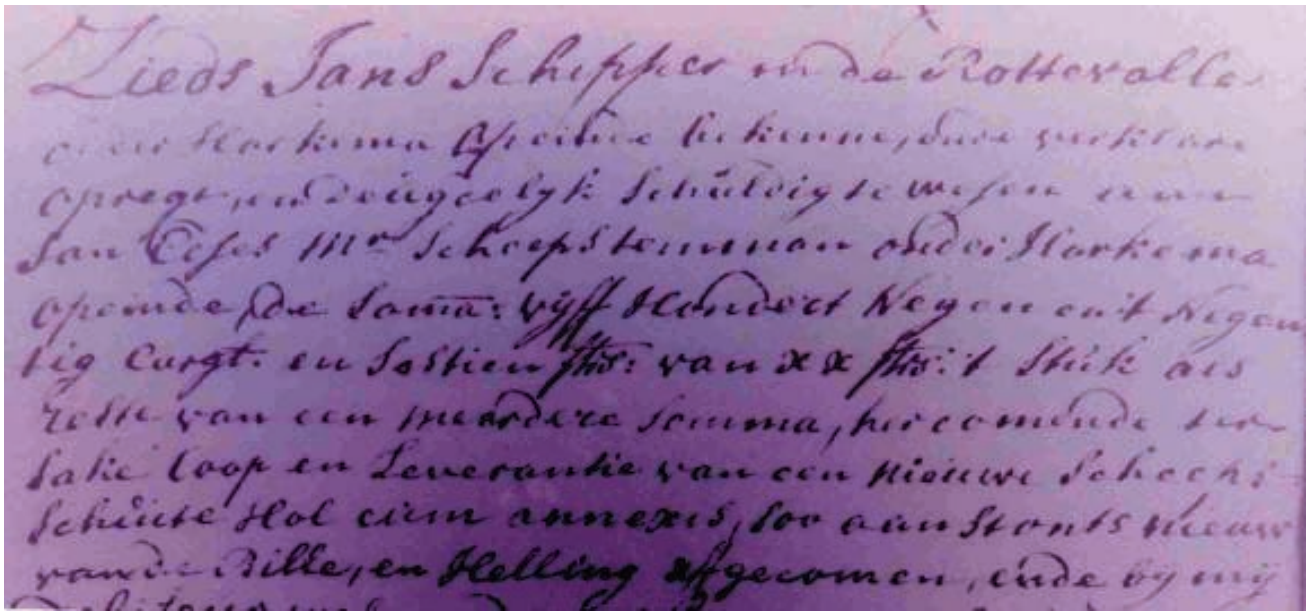 Lieds Jans Schipper in de Rottevalle
onder Harkema Opeinde bekenne, ende verklare
opregt, en deugdelyk schuldig te wesen aan
Jan Eeses Mr Scheepstemman onder Harkema
opeinde, de Soma: vyff Hondert Negen en t Negen
tig Cargt. en Sestien strs: van xx strs: t Stuk als
reste van een meerdere Somma, hercomende ter
sake Coop en Leverantie van een nieuwe Schechs
Schuite Hol cum annexis, soo aanstonts nieuw
van de Bille, en Helling afgecomen, ende by mij